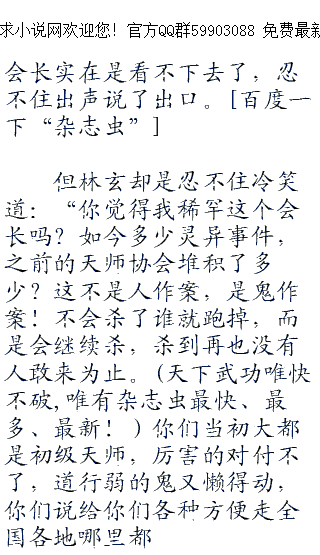 求小说网欢迎您！官方QQ群59903088 免费最新
会长实在是看不下去了，忍
不住出声说了出口。[百度一
下“杂志虫”]
但林玄却是忍不住冷笑
道：“你觉得我稀罕这个会
长吗？如今多少灵异事件，
之前的天师协会堆积了多
少？这不是人作案，是鬼作
案！不会杀了谁就跑掉，而
是会继续杀，杀到再也没有
人敢来为止。(天下武功唯快
不破,唯有杂志虫最快、最
多、最新！)你们当初大都
是初级天师，厉害的对付不
了，道行弱的鬼又懒得动，
你们说给你们各种方便走全
国各地哪里都